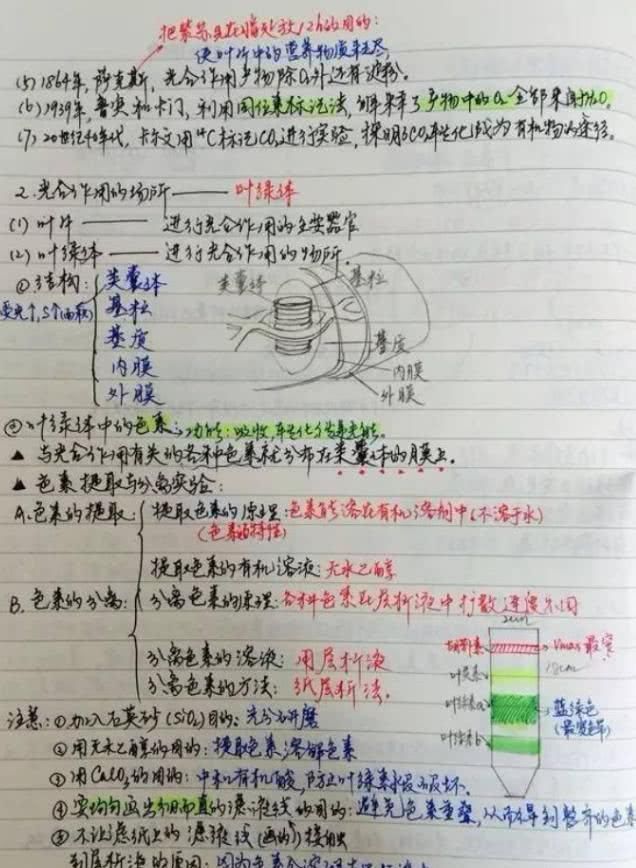 把紫苏放在暗处放12h的目的:
使叶片中的营养物质耗尽
(5) 1864年, 萨克斯, 光合作用产物除O₂外还有淀粉。
(6) 1939年, 鲁宾和卡门, 利用同位素标记法, 产物中的O₂全部来自H₂O。
(7) 20世纪40年代, 卡尔文用¹⁴C标记CO₂进行实验, 探明了CO₂转化成为有机物的途径。
2. 光合作用的场所 —— 叶绿体
(1) 叶片 —— 进行光合作用的主要器官
(2) 叶绿体 —— 进行光合作用的场所.
①结构: 类囊体
基粒
基质
内膜
外膜
类囊体
基粒
基质
内膜
外膜
②叶绿体中的色素: 功能: 吸收, 转化光能。
▲ 与光合作用有关的各种色素就分布在类囊体的膜上。
▲ 色素提取与分离实验:
A. 色素的提取: 提取色素的原理: 色素能溶在有机溶剂中(不溶于水)
(色素的特性)
提取色素的有机溶液: 无水乙醇
B. 色素的分离: 分离色素的原理: 各种色素在层析液中扩散速度不同
分离色素的溶液: 用层析液
分离色素的方法: 纸层析法.
2cm
胡萝卜素
Vmax最窄
18cm
叶黄素
叶绿素a
蓝绿色
(最宽)
叶绿素b
注意: ①加入石英砂(SiO₂)目的: 充分研磨
②用无水乙醇的目的: 提取色素溶解色素
③用CaCO₃的目的: 中和有机酸, 防止叶绿素被破坏.
④要均匀画出细而直的滤液线的目的: 避免色素重叠, 从而得到整齐的色素
⑤不让滤纸上的滤液线(画的)接触
到层析液的原因: 因为色素会溶解